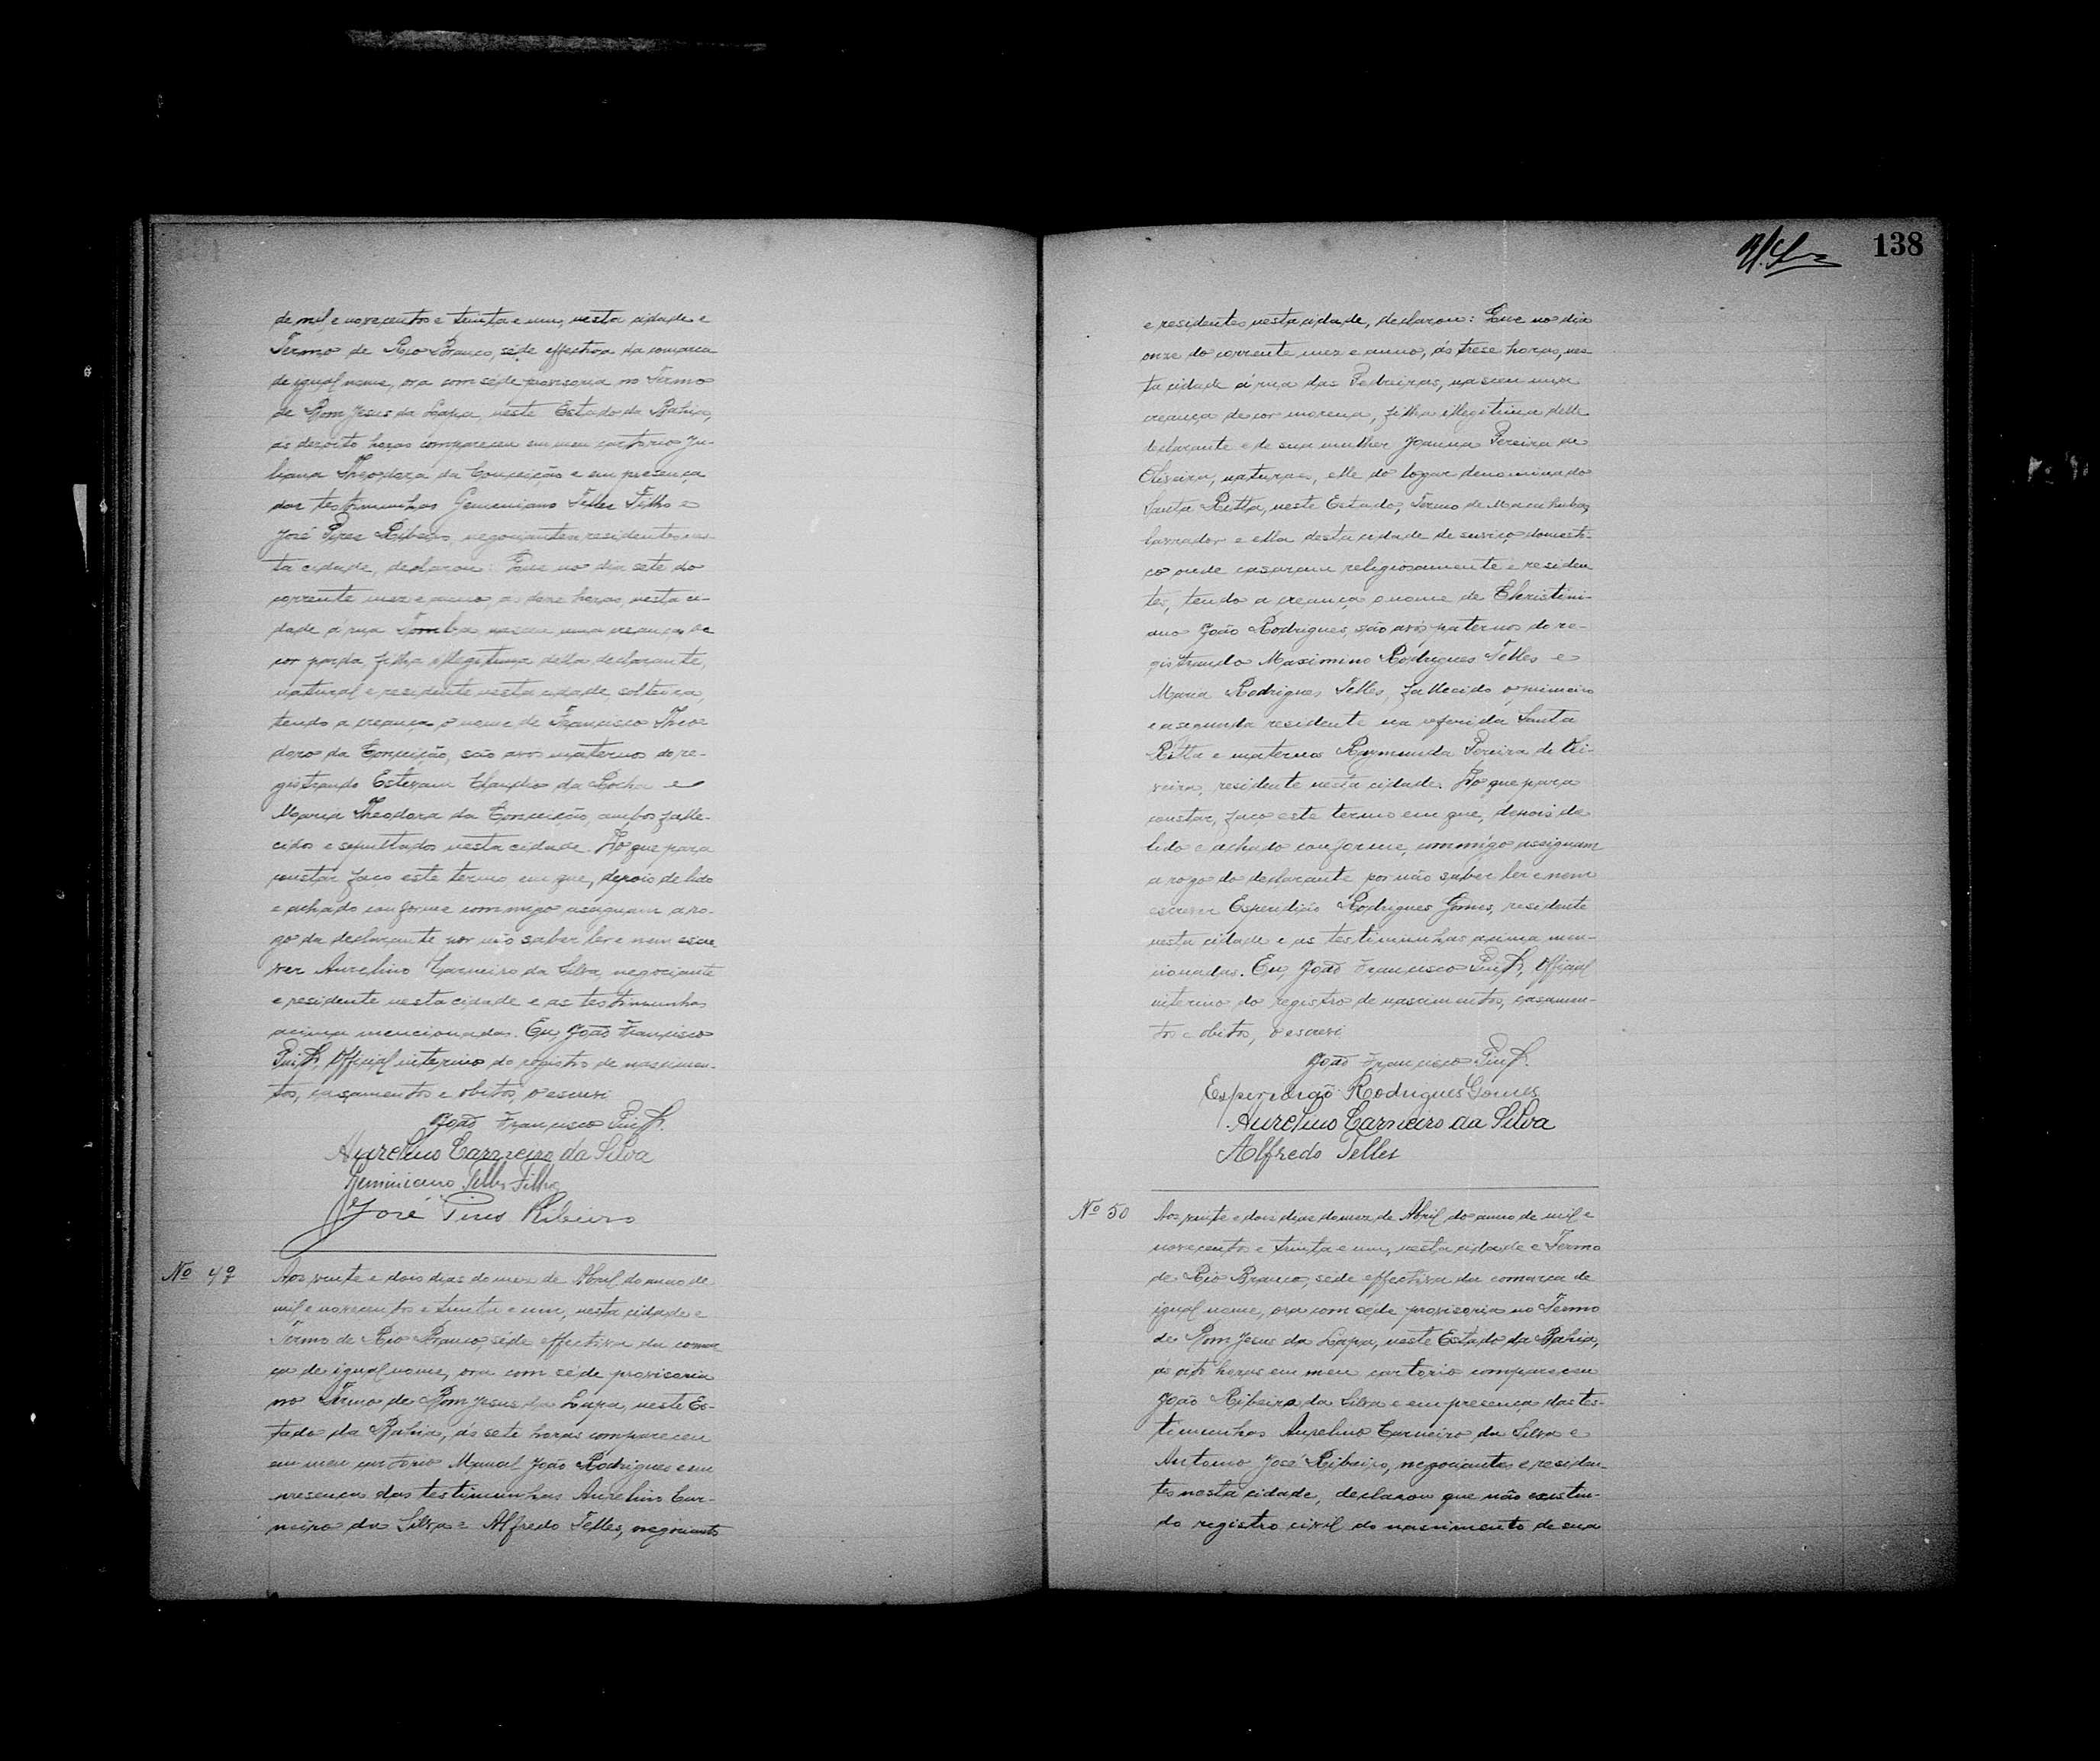 de mil e novecentos e trinta e um, nesta cidade e
Termo de Rio Branco, séde effectiva da comarca
de igual nome, ora com séde provisoria no Termo
de Bom Jesus da Lapa, neste Estado da Bahia,
ás dezoito horas compareceu em meu cartorio Ju-
liana Theodora da Conceição e em presença
das testimunhas Geminiano Telles Filho e
José Pires Ribeiro, negociantes residentes nes-
ta cidade, declarou: Que no dia sete do
corrente mez e anno, as doze horas, nesta ci-
dade á rua Tomba nasceu uma creança de
cor parda, filha illegitima della declarante,
natural e residente nesta cidade, solteira,
tendo a creança o nome de Francisco Theo-
doro da Conceição, são avos maternos do re-
gistrando Estevam Claudio da Rocha e
Maria Theodora da Conceição, ambos falle-
cidos e sepultados nesta cidade. Do que para
constar faço este termo em que, depois de lido
e achado conforme commigo assignam a ro-
go da declarante por não saber ler e nem escre
ver Aurelino Carneiro da Silva, negociante
e residente nesta cidade e as testimunhas
acima mencionadas. Eu, João Francisco
Official interino do registro de nascimen-
tos, casamentos e obitos, o escrevi
João Francisco
Aurelino Carneiro da Silva
Geminiano Telles Filho
José Pires Ribeiro
Nº 49
Aos vinte e dois dias do mez de Abril do anno de
mil e novecentos e trinta e um, nesta cidade e
Termo de Rio Branco, séde effectiva da comar
ca de igual nome, ora com séde provisoria
no Termo de Bom Jesus da Lapa, neste Es-
tado da Bahia, ás sete horas compareceu
em meu cartorio Manoel João Rodrigues e em
presença das testimunhas Aurelino Car-
neiro da Silva e Alfredo Telles, negociantes
138
e residentes nesta cidade, declarou: Que no dia
onze do corrente mez e anno, ás trese horas, nes
ta cidade á rua das Pedreiras, nasceu uma
creança de cor morena, filha illegitima delle
declarante e de sua mulher Joanna Pereira de
Oliveira, naturaes, elle do logar denominado
Santa Ritta, neste Estado, Termo de Macahubas,
lavrador e ella desta cidade de serviço domesti-
co onde casaram religiosamente e residen
tes, tendo a creança o nome de Christini-
ano João Rodrigues, são avós paternos do re-
gistrando Maximino Rodrigues Telles e
Maria Rodrigues Telles, fallecido o primeiro
e a segunda residente na referida Santa
Ritta e materna Raymunda Pereira de Oli-
veira, residente nesta cidade. Do que para
constar, faço este termo em que, depois de
lido e achado conforme, commigo assignam
a rogo do declarante por não saber ler e nem
escrever Esperidião Rodrigues Gomes, residente
nesta cidade e as testimunhas acima men-
cionadas. Eu, João Francisco Official
interino do registro de nascimentos, casamen-
tos e obitos, o escrevi
João Francisco
Esperidião Rodrigues Gomes
Aurelino Carneiro da Silva
Alfredo Telles
Nº 50
Aos vinte e dois dias do mez de Abril do anno de mil e
novecentos e trinta e um, nesta cidade e Termo
de Rio Branco, séde effectiva da comarca de
igual nome, ora com séde provisoria no Termo
de Bom Jesus da Lapa, neste Estado da Bahia,
ás oito horas em meu cartorio compareceu
João Ribeiro da Silva e em presença das tes-
timunhas Aurelino Carneiro da Silva e
Antonio José Ribeiro, negociantes e residen-
tes nesta cidade, declarou que não existin-
do registro civil do nascimento de sua